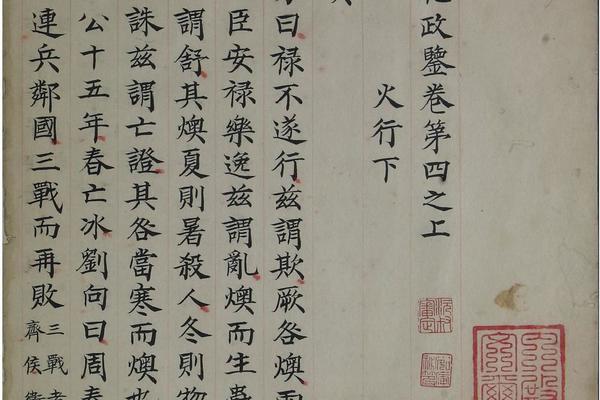 政鑒卷第四之上
火行下
曰禄不遂行兹謂欺厥咎燠雨
臣安禄樂逸兹謂亂燠而生蟲
謂舒其燠夏則暑殺人冬則物
誅兹謂亡證其咎當寒而燠
公十五年春亡冰劉向曰周春
連兵鄰國三戰而再敗
三戰者
齊侯衛